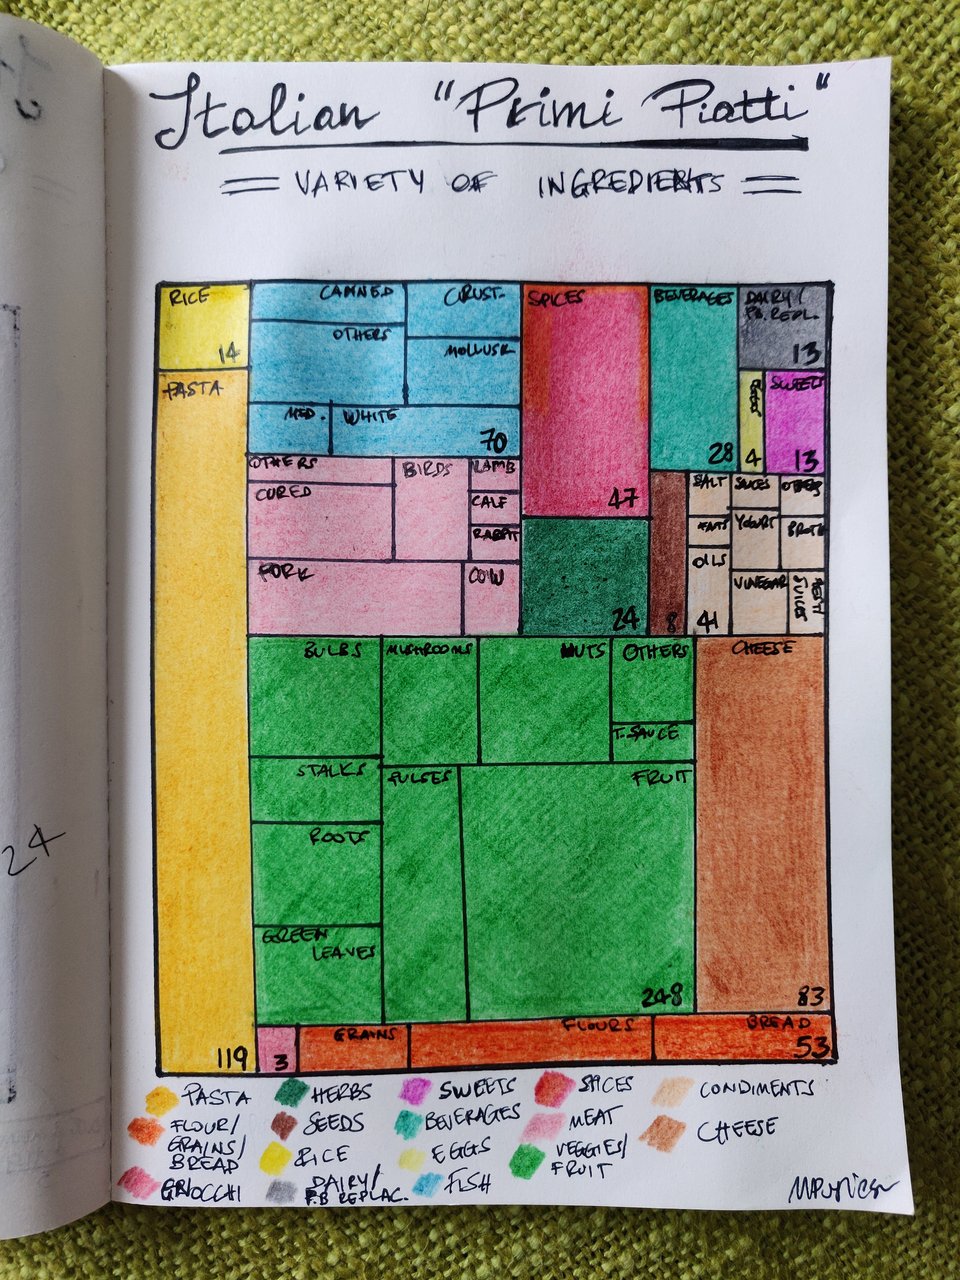 Italian "Primi Piatti"
VARIETY OF INGREDIENTS
RICE
14
PASTA
119
CANNED
CRUST.
OTHERS
MOLLUSK
MED.
WHITE
70
SPICES
47
BEVERAGES
28
DAIRY/
P.B. REPL.
13
4
SWEETS
13
OTHERS
BIRDS
LAMB
CURED
CALF
RABBIT
PORK
COW
24
8
SALT
SAUCES
OTHERS
FATS
YOGURT
BROTH
OILS
VINEGAR
41
BULBS
MUSHROOMS
NUTS
OTHERS
CHEESE
T. SAUCE
STALKS
PULSES
FRUIT
ROOTS
GREEN
LEAVES
248
83
3
GRAINS
FLOURS
BREAD
53
PASTA
HERBS
SWEETS
SPICES
CONDIMENTS
FLOUR/
GRAINS/
BREAD
SEEDS
BEVERAGES
MEAT
CHEESE
RICE
EGGS
VEGGIES/
FRUIT
GNOCCHI
DAIRY/
P.B REPLAC.
FISH
24